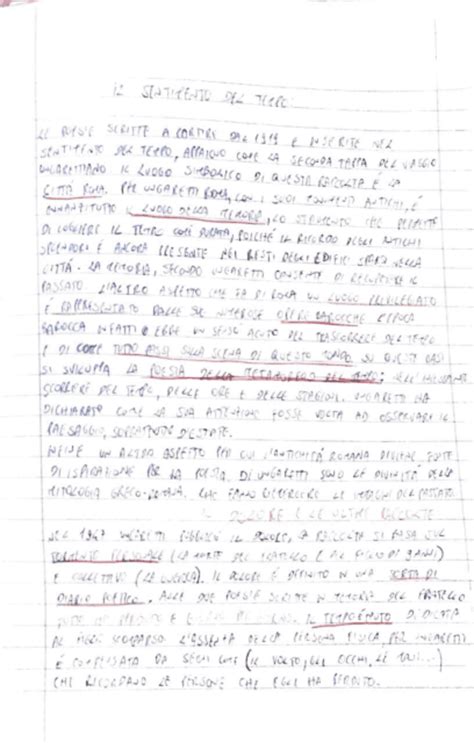 IL SENTIMENTO DEL TEMPO
LE POESIE SCRITTE A PARTIRE DAL 1919 E INSERITE NEL
SENTIMENTO DEL TEMPO, APPAIONO COME LA SECONDA TAPPA DEL VIAGGIO
UNGARETTIANO IL LUOGO SIMBOLICO DI QUESTA RACCOLTA È LA
CITTÀ ROMA. PER UNGARETTI ROMA, CON I SUOI MONUMENTI ANTICHI, È
INNANZITUTTO IL LUOGO DELLA MEMORIA, LO STRUMENTO CHE PERMETTE
DI COGLIERE IL TEMPO COME DURATA, POICHÉ IL RICORDO DEGLI ANTICHI
SPLENDORI È ANCORA PRESENTE NEI RESTI DEGLI EDIFICI SPARSI NELLA
CITTÀ. LA MEMORIA, SECONDO UNGARETTI CONSENTE DI RECUPERARE IL
PASSATO L'ALTRO ASPETTO CHE FA DI ROMA UN LUOGO PRIVILEGIATO
È RAPPRESENTATO DALLE SUE NUMEROSE OPERE BAROCCHE EPOCA
BAROCCA INFATTI EBBE UN SENSO ACUTO DEL TRASCORRERE DEL TEMPO
E DI COME TUTTO PASSI SULLA SCENA DI QUESTO MONDO SU QUESTE BASI
SI SVILUPPA LA POESIA DELLA METAMORFOSI DEL TEMPO; NELL'INCESSANTE
SCORRERE DEL TEMPO, DELLE ORE E DELLE STAGIONI. UNGARETTI HA
DICHIARATO COME LA SUA ATTENZIONE FOSSE VOLTA AD OSSERVARE IL
PAESAGGIO, SOPRATTUTTO D'ESTATE.
INFINE UN ALTRO ASPETTO PER CUI L'ANTICHITÀ ROMANA DIVENNE FONTE
DI ISPIRAZIONE PER LA POESIA DI UNGARETTI SONO LE DIVINITÀ DELLA
MITOLOGIA GRECO-ROMANA. CHE FANNO RIEMERGERE LE IMMAGINI DEL PASSATO.
IL DOLORE E LE ULTIME RACCOLTE
NEL 1947 UNGARETTI PUBBLICÒ IL DOLORE, LA RACCOLTA SI BASA SUL
PERSONALE (LA MORTE DEL FRATELLO E DEL FIGLIO DI 9 ANNI)
E COLLETTIVO (LA GUERRA). IL DOLORE È DEFINITO IN UNA SORTA DI
DIARIO POETICO. ALLE DUE POESIE SCRITTE IN MEMORIA DEL FRATELLO
DEL FIGLIO SCOMPARSO L'ASSENZA DELLA PERSONA FISICA, PER UNGARETTI
È COMPENSATA DA SEGNI COME (IL VOLTO, GLI OCCHI, LE MANI...)
CHE RICORDANO LE PERSONE CHE EGLI HA PERDUTO.